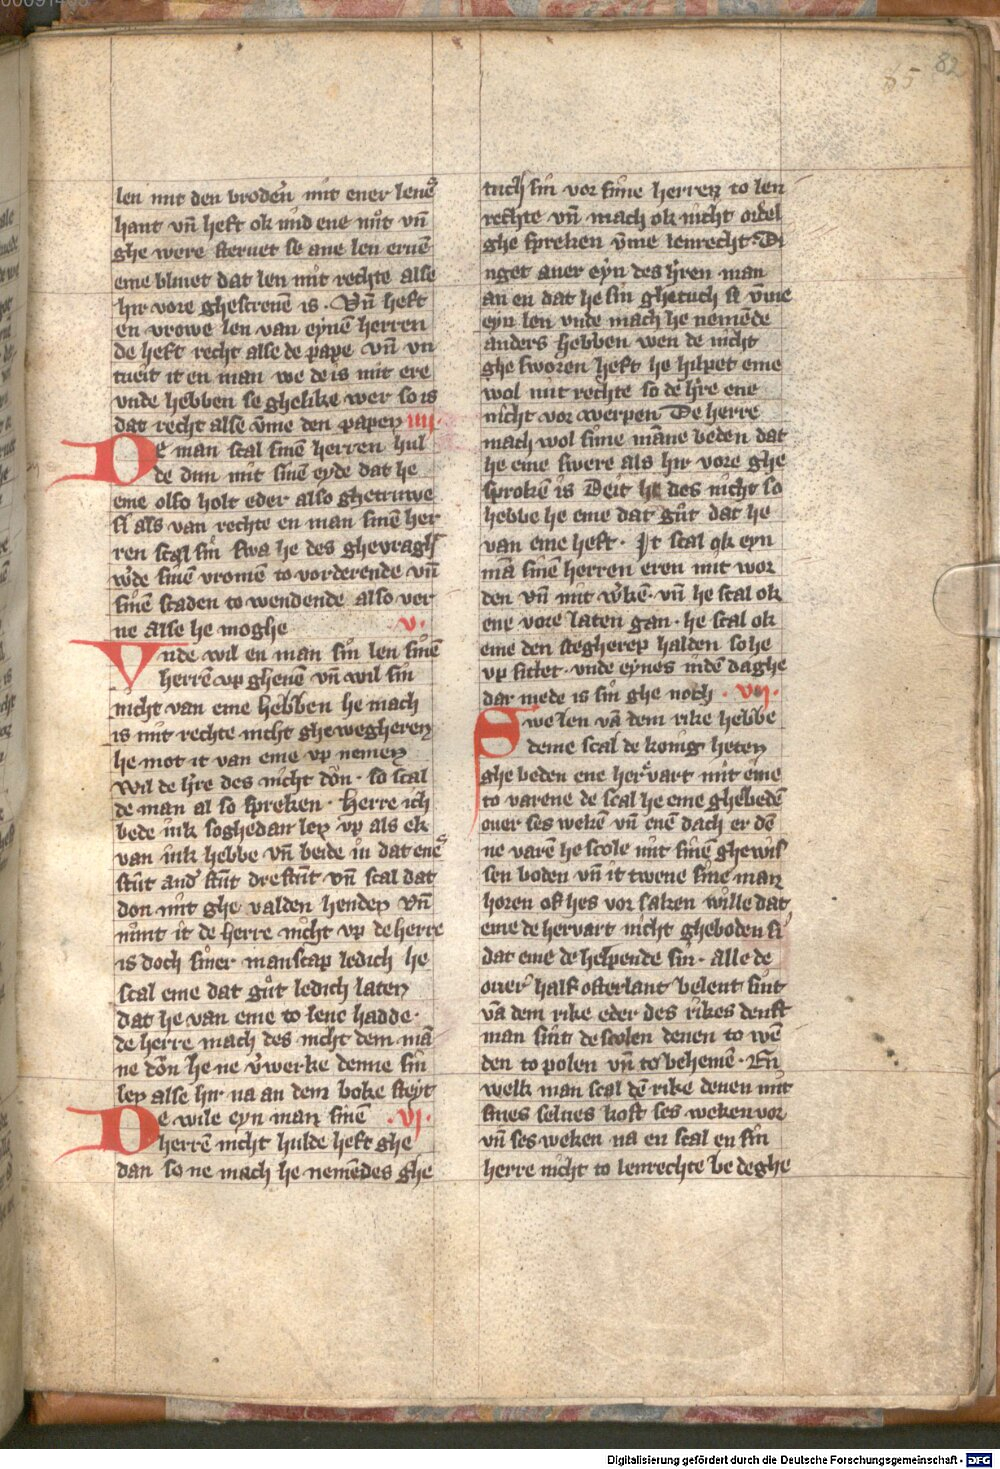 82
65
len mit den broderͤn mit ener leneͤ
hant vn̄ heft ok nid ene nůt vn̄
ghe were steruet se ane len eruē
eme blniet dat len mit rechte alse
hir vore ghescreuē is · Vn̄ heft
en vrowe len van eynē herren
de heft recht alse de pape vn̄ vn
tueit it en man we de is mit ere
vnde hebben se ghelike wer so is
dat recht alse v̄me den papen iiij·
De man scal sinē herren hul
de dun mit sinē eyde dat he
eme olso holt eder also ghetruwe
si als van rechte en man sinē her
ren scal sin swa he des ghevragh
w̄de sinē vromē to vorderende vn̄
sinē scaden to wendende also ver
ne alse he moghe v·
Vnde wil en man sin len sinē
herrē vp gheuē vn̄ wil sin
nicht van eme hebben he mach
is mit rechte nicht ghewegheren
he mot it van eme vp nemen
wil de h̄re des nicht dōn · so scal
de man al so spreken · herre ich
bede iuk soghedan len vp als ek
van iuk hebbe vn̄ beide in dat eneͤ
stūt and̓ stūt dre stūt vn̄ scal dat
don mit ghe valden henden vn̄
nimt it de herre nicht vp de herre
is doch siner manscap ledich he
scal eme dat gůt ledich laten
dat he van eme to lene hadde ·
de herre mach des nicht dem mā
ne dōn he ne v̓werke denne sin
len alse hir na an dem boke steyt
De wile eyn man sinē · vj·
herrē nicht hulde heft ghe
dan so ne mach he nemēdes ghe
tuch sin vor sime herren to len
rechte vn̄ mach ok nicht ordel
ghe spreken v̄me lenrecht · Di
nget auer eyn des h̄ren man
an en dat he sin ghetuch si v̄me
eyn len vnde mach he nemēde
anders hebben wen de nicht
ghe sworen heft he hilpet eme
wol mit rechte so de h̄re ene
nicht vor werpen De herre
mach wol sime māne beden dat
he eme swere als hir vore ghe
sprokē is Deit he des nicht so
hebbe he eme dat gůt dat he
van eme heft · It scal ok eyn
mā sinē herren eren mit wor
den vn̄ mit w̓kē · vn̄ he scal ok
ene vore laten gan · he scal ok
eme den stegherep halden so he
vp sittet · vnde eynes indē daghe
dar mede is sin ghe noch · vij·
Swe len vā dem rike hebbe
deme scal de konig heten
ghe beden ene hervart mit eme
to varene de scal he eme ghebedē
ouer ses wekē vn̄ enē dach er dē
ne varē he scole mit sinē ghewis
sen boden vn̄ it twene sine man
horen of hes vor saken wille dat
eme de hervart nicht gheboden si
dat eme de helpende sin · alle de
ouer half osterlant belent sint
vā dem rike eder des rikes denst
man sint de scolen denen to wē
den to polen vn̄ to behemē · En
welk man scal dē rike denen mit
sines selues kost ses weken vor
vn̄ ses weken na en scal en sin
herre nicht to lenrechte be deghe
Digitalisierung gefördert durch die Deutsche Forschungsgemeinschaft - DFG